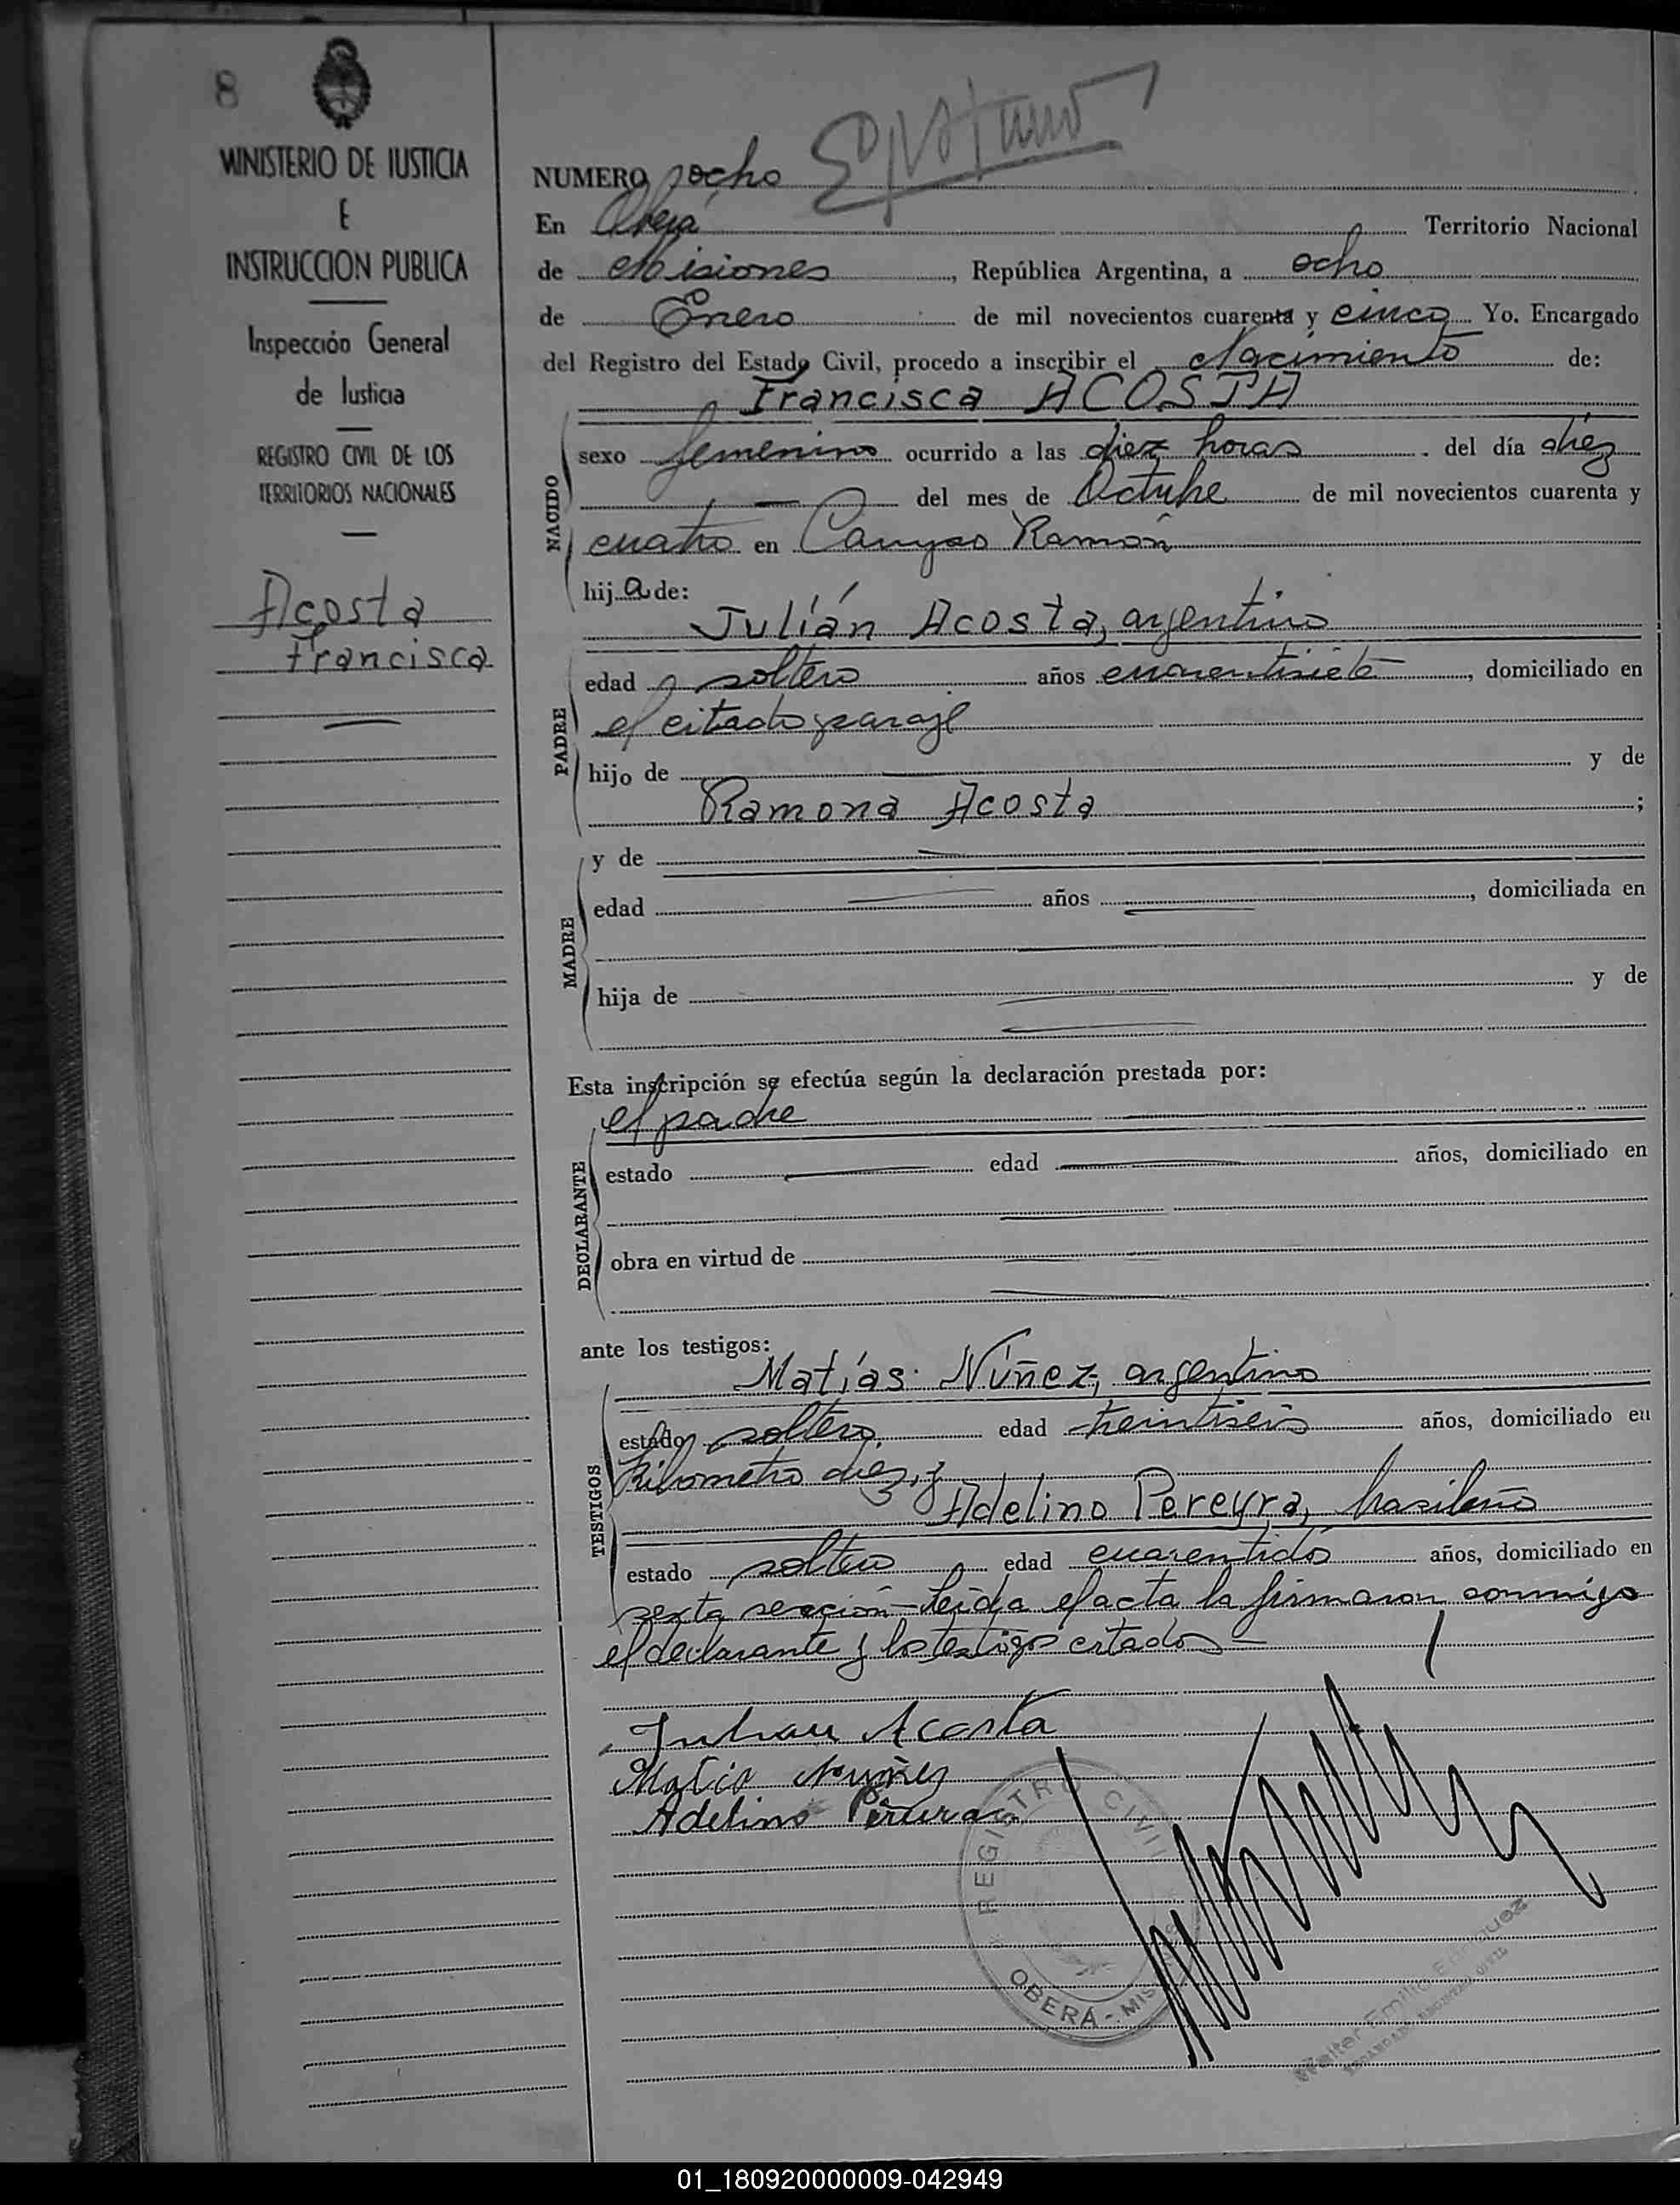 8
MINISTERIO DE JUSTICIA
E
INSTRUCCION PUBLICA
Inspección General
de Justicia
REGISTRO CIVIL DE LOS
TERRITORIOS NACIONALES
Acosta
Francisca
NUMERO ocho
En Oberá Territorio Nacional
de Misiones, República Argentina, a ocho
de Enero de mil novecientos cuarenta y cinco Yo. Encargado
del Registro del Estado Civil, procedo a inscribir el Nacimiento de:
Francisca ACOSTA
NACIDO
sexo femenino ocurrido a las diez horas del día diez
del mes de Octubre de mil novecientos cuarenta y
cuatro en Campo Ramón
hija de:
Julián Acosta, argentino
PADRE
edad soltero años cuarentisiete, domiciliado en
el citado paraje
hijo de y de
Ramona Acosta;
MADRE
y de
edad años, domiciliada en
hija de y de
Esta inscripción se efectúa según la declaración prestada por:
el padre
DECLARANTE
estado edad años, domiciliado en
obra en virtud de
ante los testigos:
Matías Núñez, argentino
TESTIGOS
estado soltero, edad treintiseis años, domiciliado en
Kilometro diez, y
Adelino Pereyra, brasileño
estado soltero edad cuarentidos años, domiciliado en
sexta sección - Leida el acta la firmaron conmigo
el declarante y los testigos citados -
Julian Acosta
Matia Nuñez
Adelino
REGISTRO CIVIL
OBERÁ - MIS
Walter Emilio Enriquez
ENCARGADO REGISTRO CIVIL
01_180920000009-042949